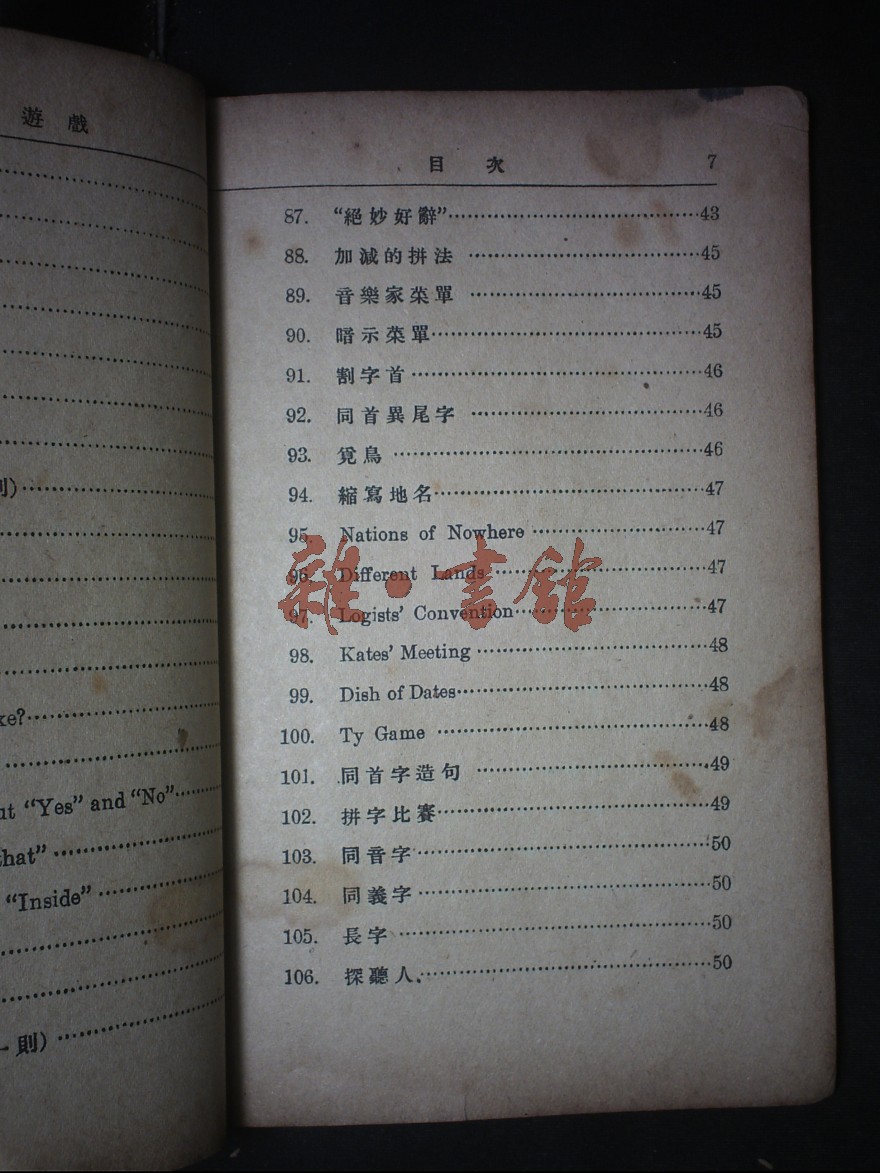 遊戲
則)
ke?
ut “Yes” and “No”
that”
“Inside”
一則)
目次 7
87. “絕妙好辭” 43
88. 加減的拼法 45
89. 音樂家菜單 45
90. 暗示菜單 45
91. 割字首 46
92. 同首異尾字 46
93. 覓鳥 46
94. 縮寫地名 47
95. Nations of Nowhere 47
96. Different Lands 47
97. Logists’ Convention 47
98. Kates’ Meeting 48
99. Dish of Dates 48
100. Ty Game 48
101. 同首字造句 49
102. 拼字比賽 49
103. 同音字 50
104. 同義字 50
105. 長字 50
106. 探聽人 50
雜·書館